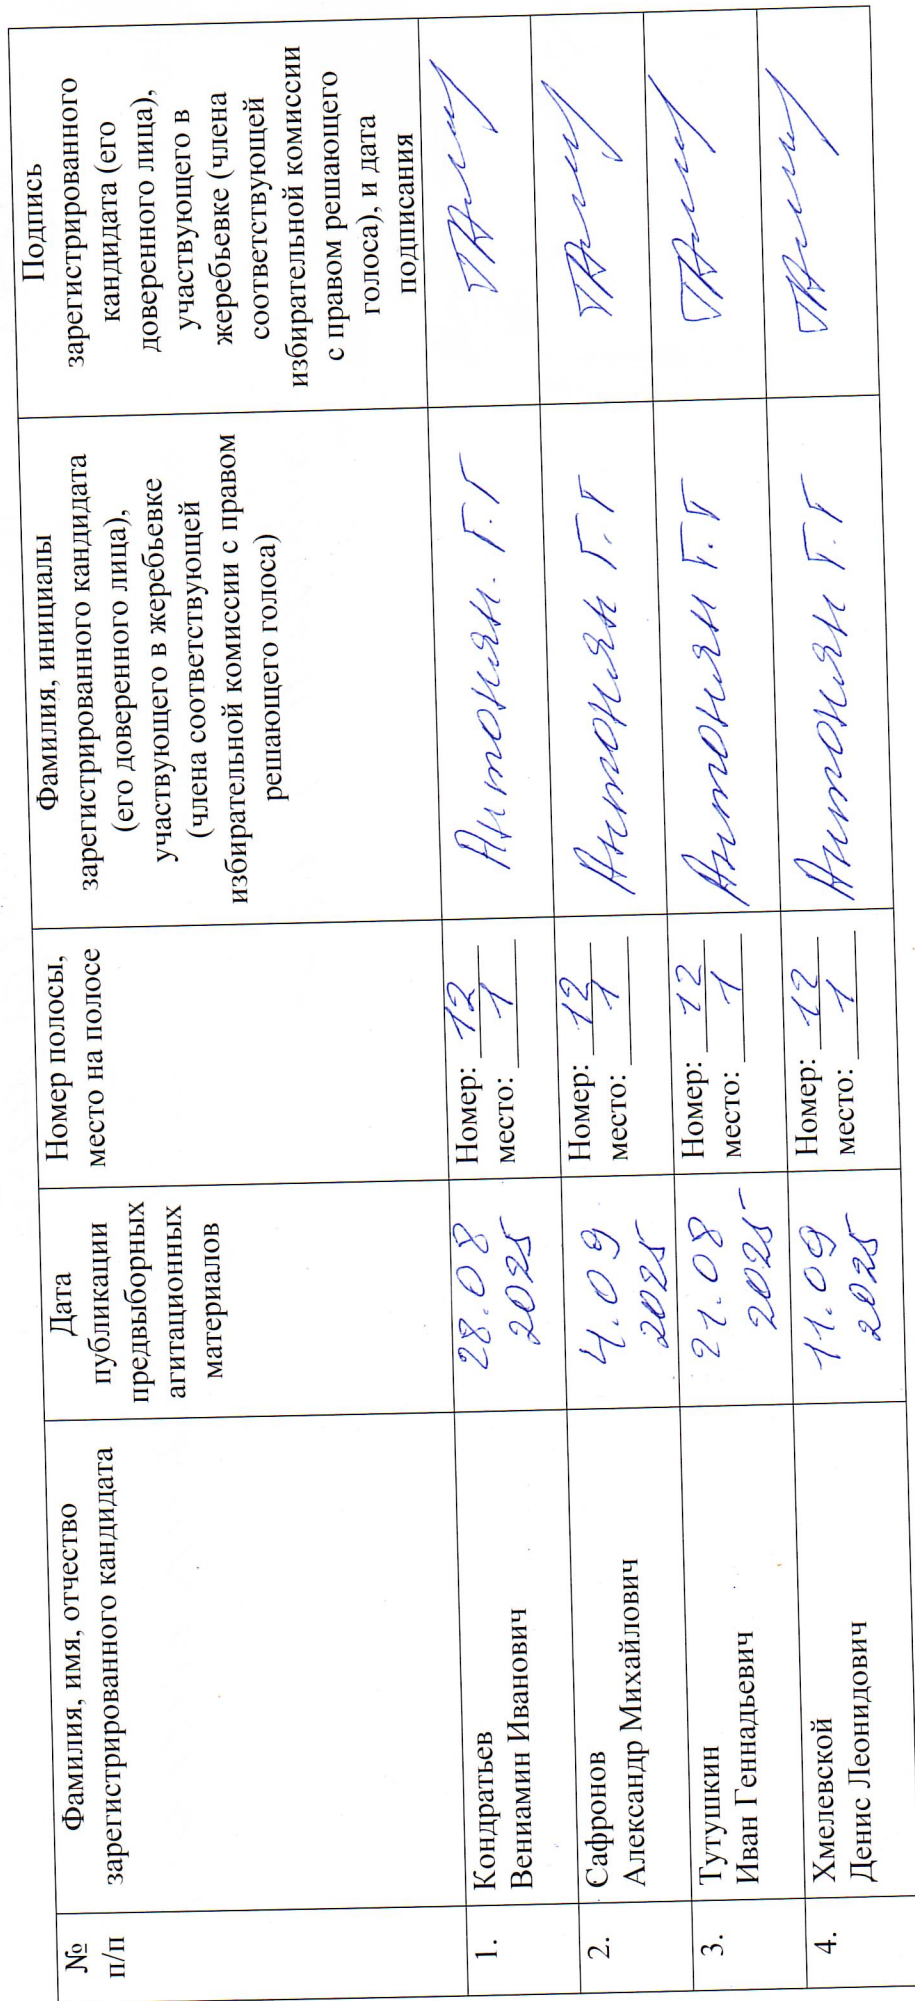 №
п/п
Фамилия, имя, отчество
зарегистрированного кандидата
Дата
публикации
предвыборных
агитационных
материалов
Номер полосы,
место на полосе
Фамилия, инициалы
зарегистрированного кандидата
(его доверенного лица),
участвующего в жеребьевке
(члена соответствующей
избирательной комиссии с правом
решающего голоса)
Подпись
зарегистрированного
кандидата (его
доверенного лица),
участвующего в
жеребьевке (члена
соответствующей
избирательной комиссии
с правом решающего
голоса), и дата
подписания
1.
Кондратьев
Вениамин Иванович
28.08
2025
Номер: 12
место: 1
Антонян. Г.Г
2.
Сафронов
Александр Михайлович
4.09
2025
Номер: 12
место: 1
Антонян Г.Г
3.
Тутушкин
Иван Геннадьевич
21.08
2025
Номер: 12
место: 1
Антонян Г.Г
4.
Хмелевской
Денис Леонидович
11.09
2025
Номер: 12
место: 1
Антонян Г.Г